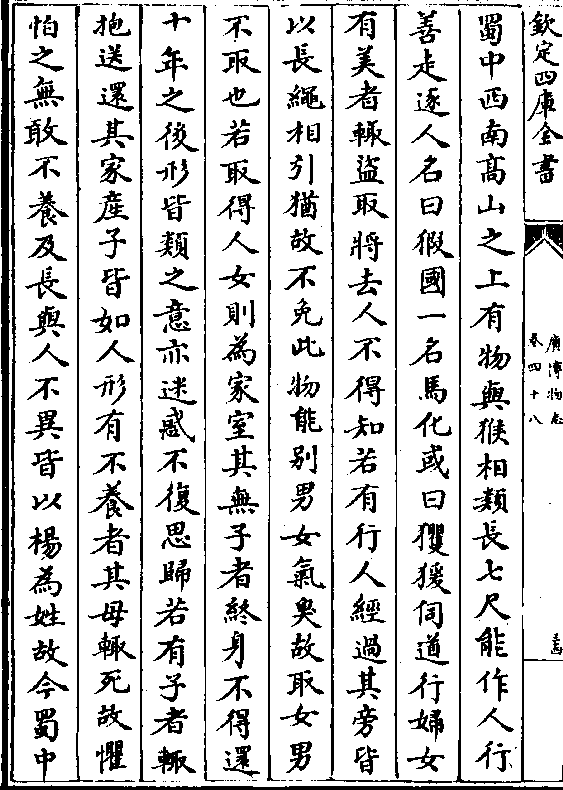 欽定四庫全書
廣博物志
卷四十八
蜀中西南髙山之上有物與猴相類長七尺能作人行
善走逐人名曰猳國一名馬化或曰玃猨伺道行婦女
有美者輙盜取將去人不得知若有行人經過其旁皆
以長繩相引猶故不免此物能别男女氣臭故取女男
不取也若取得人女則為家室其無子者終身不得還
十年之後形皆類之意亦迷惑不復思歸若有子者輙
抱送還其家産子皆如人形有不養者其母輙死故懼
怕之無敢不養及長與人不異皆以楊為姓故今蜀中